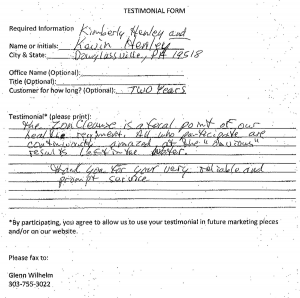 TESTIMONIAL FORM
Required Information Kimberly Henley and
Name or initials: Kevin Henley
City & State: Douglassville, PA 19518
Office Name (Optional):
Title (Optional):
Customer for how long? (Optional): Two Years
Testimonial* (please print):
The Ion Cleanse is a focal point of our
health regiment. All who participate are
continually amazed at the "obvious"
results left in the water.
Thank you for your very reliable and
prompt service
*By participating, you agree to allow us to use your testimonial in future marketing pieces
and/or on our website.
Please fax to:
Glenn Wilhelm
303-755-3022